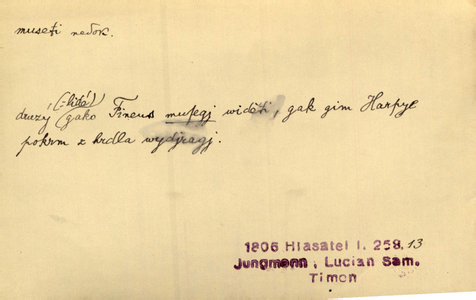 museti nedok.
(:lidé)
druzý gako Fineus musegj widěti, gak gim Harpye
pokrm z hrdla wydjragj.
1806 Hlasatel I. 258, 13
Jungmann, Lucian Sam.
Timon